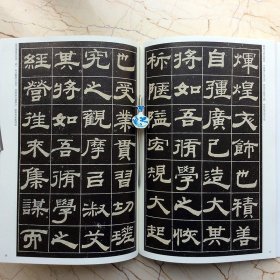 煇煌文飾也積善
自彊廣己造大其
將如吾脩學之恢
宏規大起
也受業貫習切磋
究之觀摩己淑艾
其將如吾脩學之
經營往來集謀而